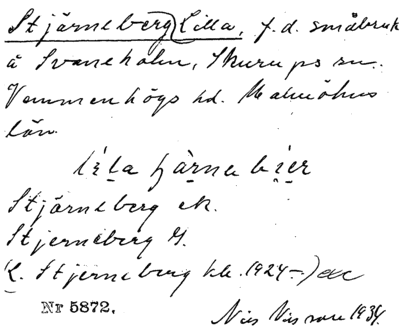 Stjärneberg, Lilla, f.d. småbruk
å Svaneholm, Skurups sn.
Vemmenhögs hd. Malmöhus
län
Stjärneberg ek.
Stjerneberg G.
(L. Stjerneberg kb. 1924–) ec
Nr 5872.
Nils 1934.